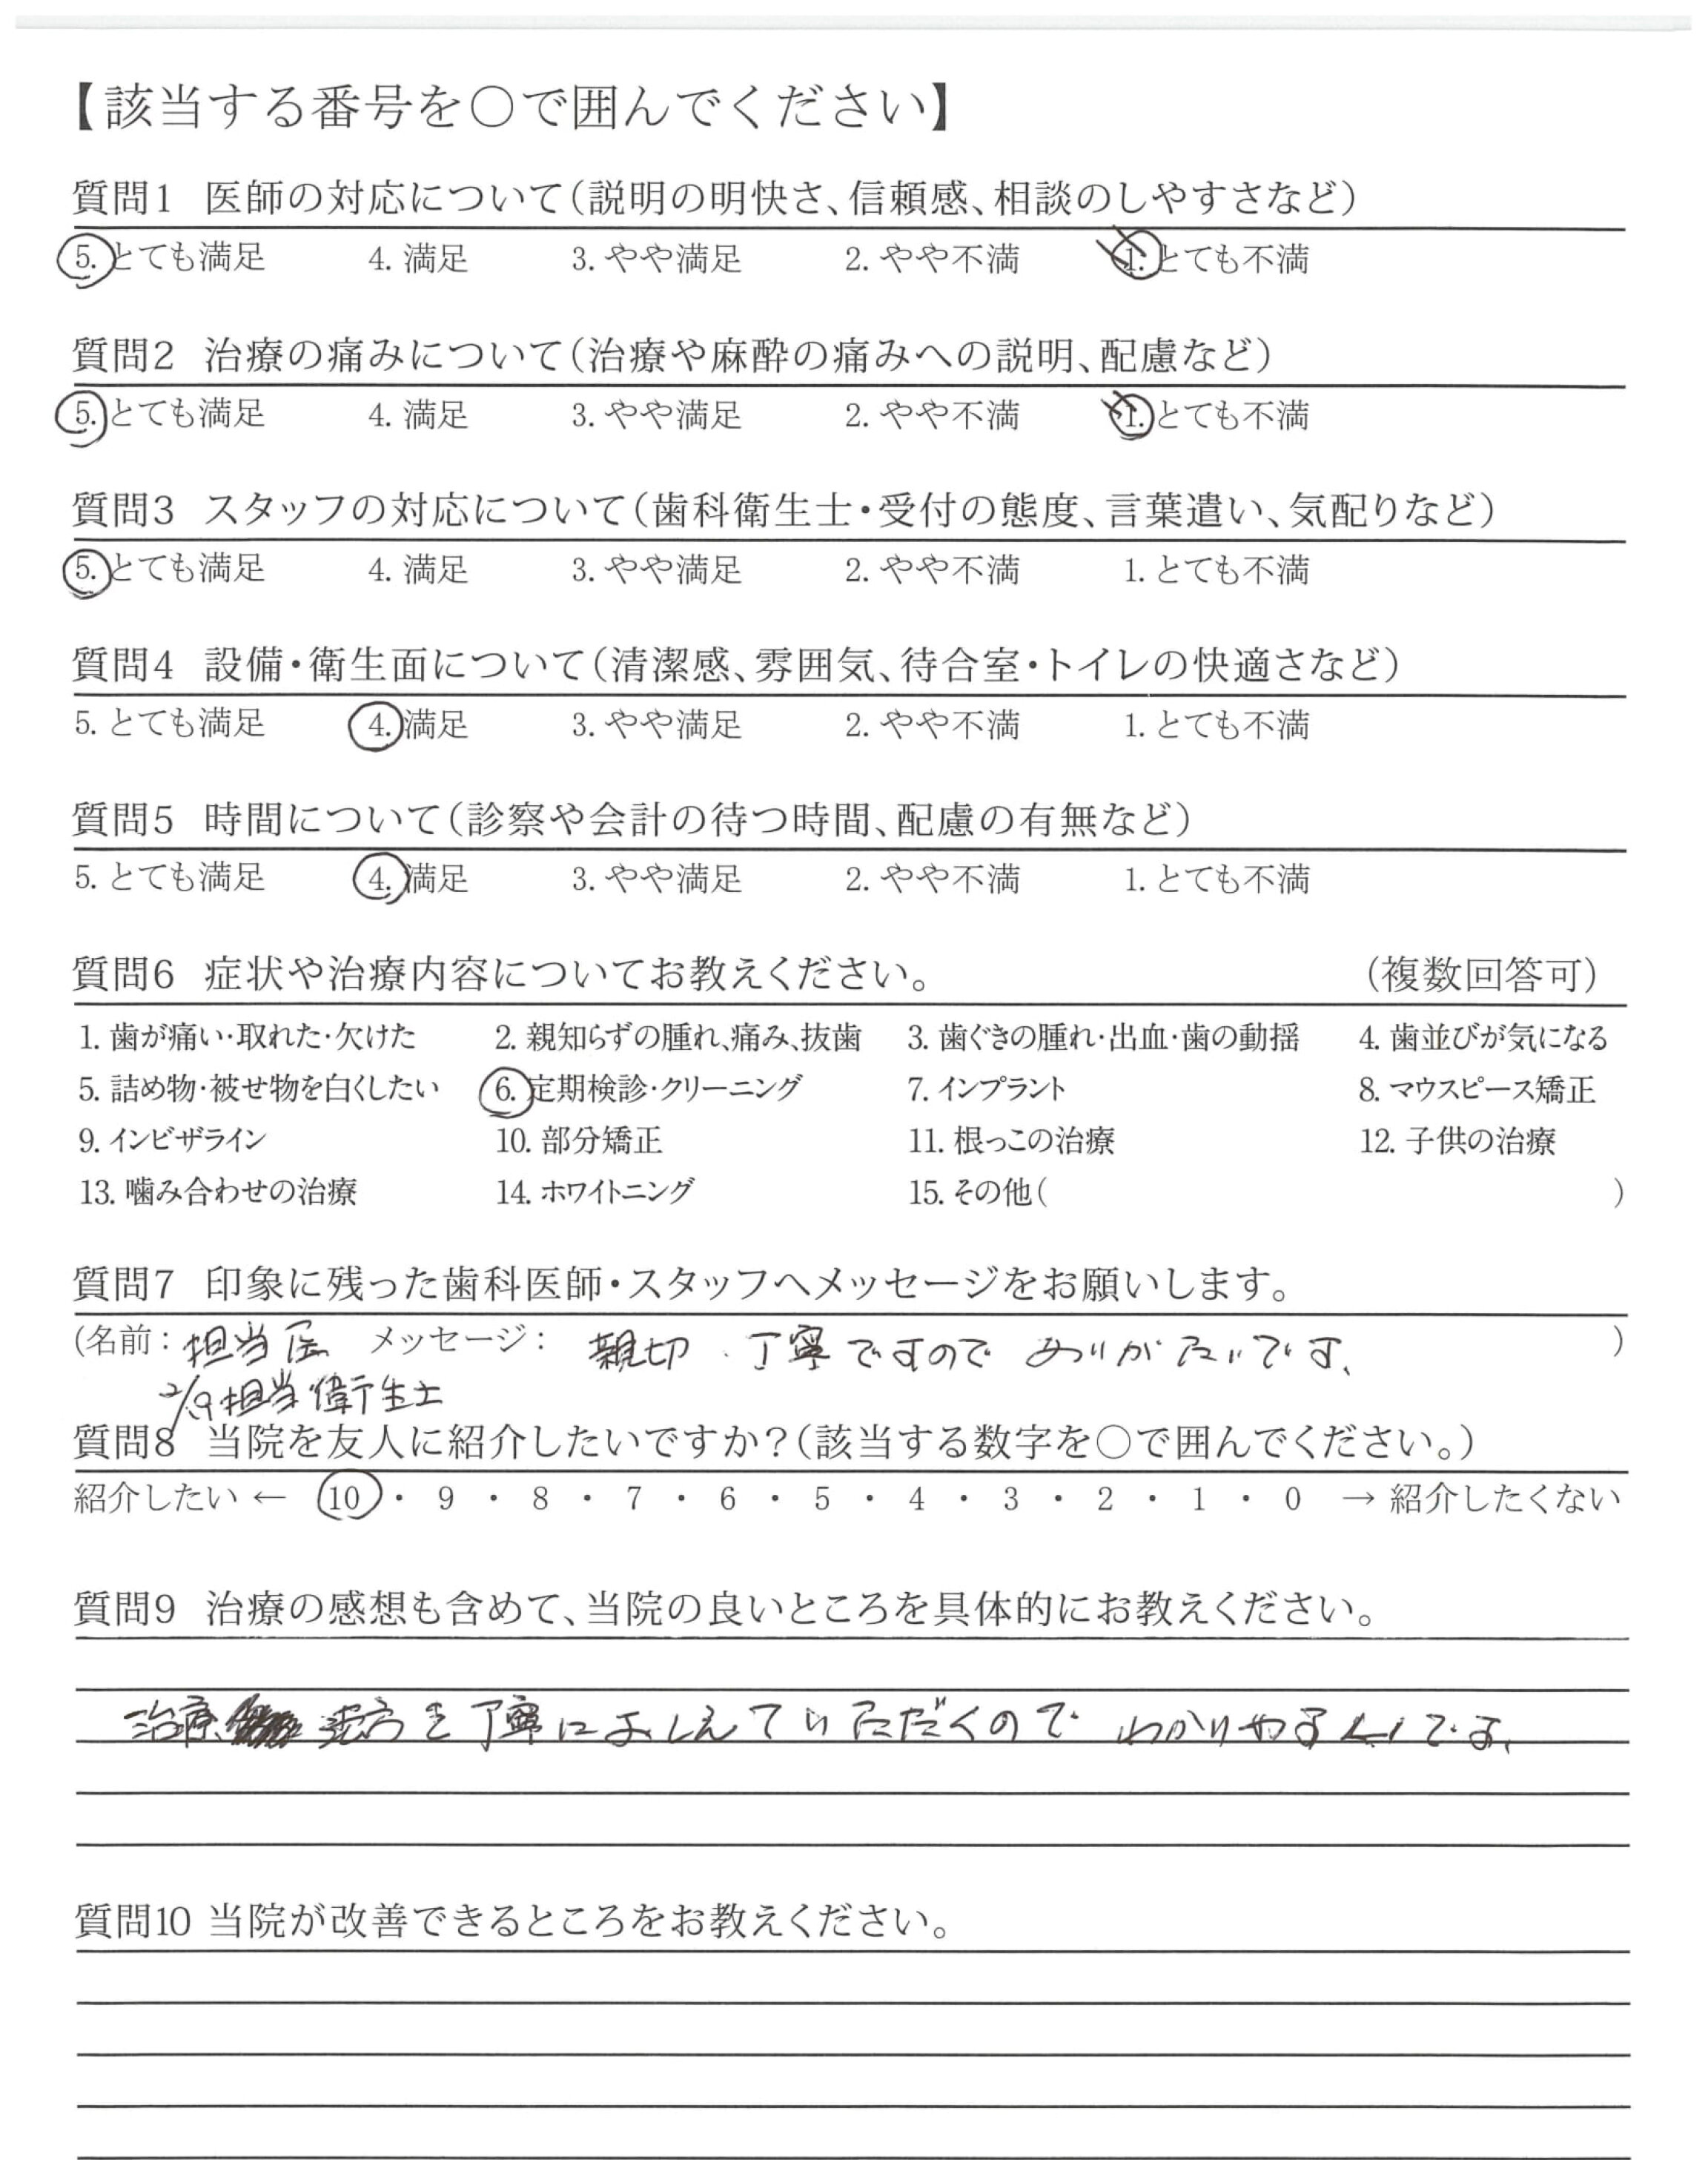 【該当する番号を○で囲んでください】
質問1 医師の対応について(説明の明快さ、信頼感、相談のしやすさなど)
5. とても満足 4. 満足 3. やや満足 2. やや不満 1. とても不満
質問2 治療の痛みについて(治療や麻酔の痛みへの説明、配慮など)
5. とても満足 4. 満足 3. やや満足 2. やや不満 1. とても不満
質問3 スタッフの対応について(歯科衛生士・受付の態度、言葉遣い、気配りなど)
5. とても満足 4. 満足 3. やや満足 2. やや不満 1. とても不満
質問4 設備・衛生面について(清潔感、雰囲気、待合室・トイレの快適さなど)
5. とても満足 4. 満足 3. やや満足 2. やや不満 1. とても不満
質問5 時間について(診察や会計の待つ時間、配慮の有無など)
5. とても満足 4. 満足 3. やや満足 2. やや不満 1. とても不満
質問6 症状や治療内容についてお教えください。 (複数回答可)
1. 歯が痛い・取れた・欠けた 2. 親知らずの腫れ、痛み、抜歯 3. 歯ぐきの腫れ・出血・歯の動揺 4. 歯並びが気になる
5. 詰め物・被せ物を白くしたい 6. 定期検診・クリーニング 7. インプラント 8. マウスピース矯正
9. インビザライン 10. 部分矯正 11. 根っこの治療 12. 子供の治療
13. 噛み合わせの治療 14. ホワイトニング 15. その他( )
質問7 印象に残った歯科医師・スタッフへメッセージをお願いします。
(名前: 担当医 メッセージ: 親切 丁寧ですので ありがたいです、 )
2/9担当衛生士
質問8 当院を友人に紹介したいですか?(該当する数字を○で囲んでください。)
紹介したい ← 10 ・ 9 ・ 8 ・ 7 ・ 6 ・ 5 ・ 4 ・ 3 ・ 2 ・ 1 ・ 0 → 紹介したくない
質問9 治療の感想も含めて、当院の良いところを具体的にお教えください。
治療 を丁寧におしえていただくので わかりやすくです、
質問10 当院が改善できるところをお教えください。